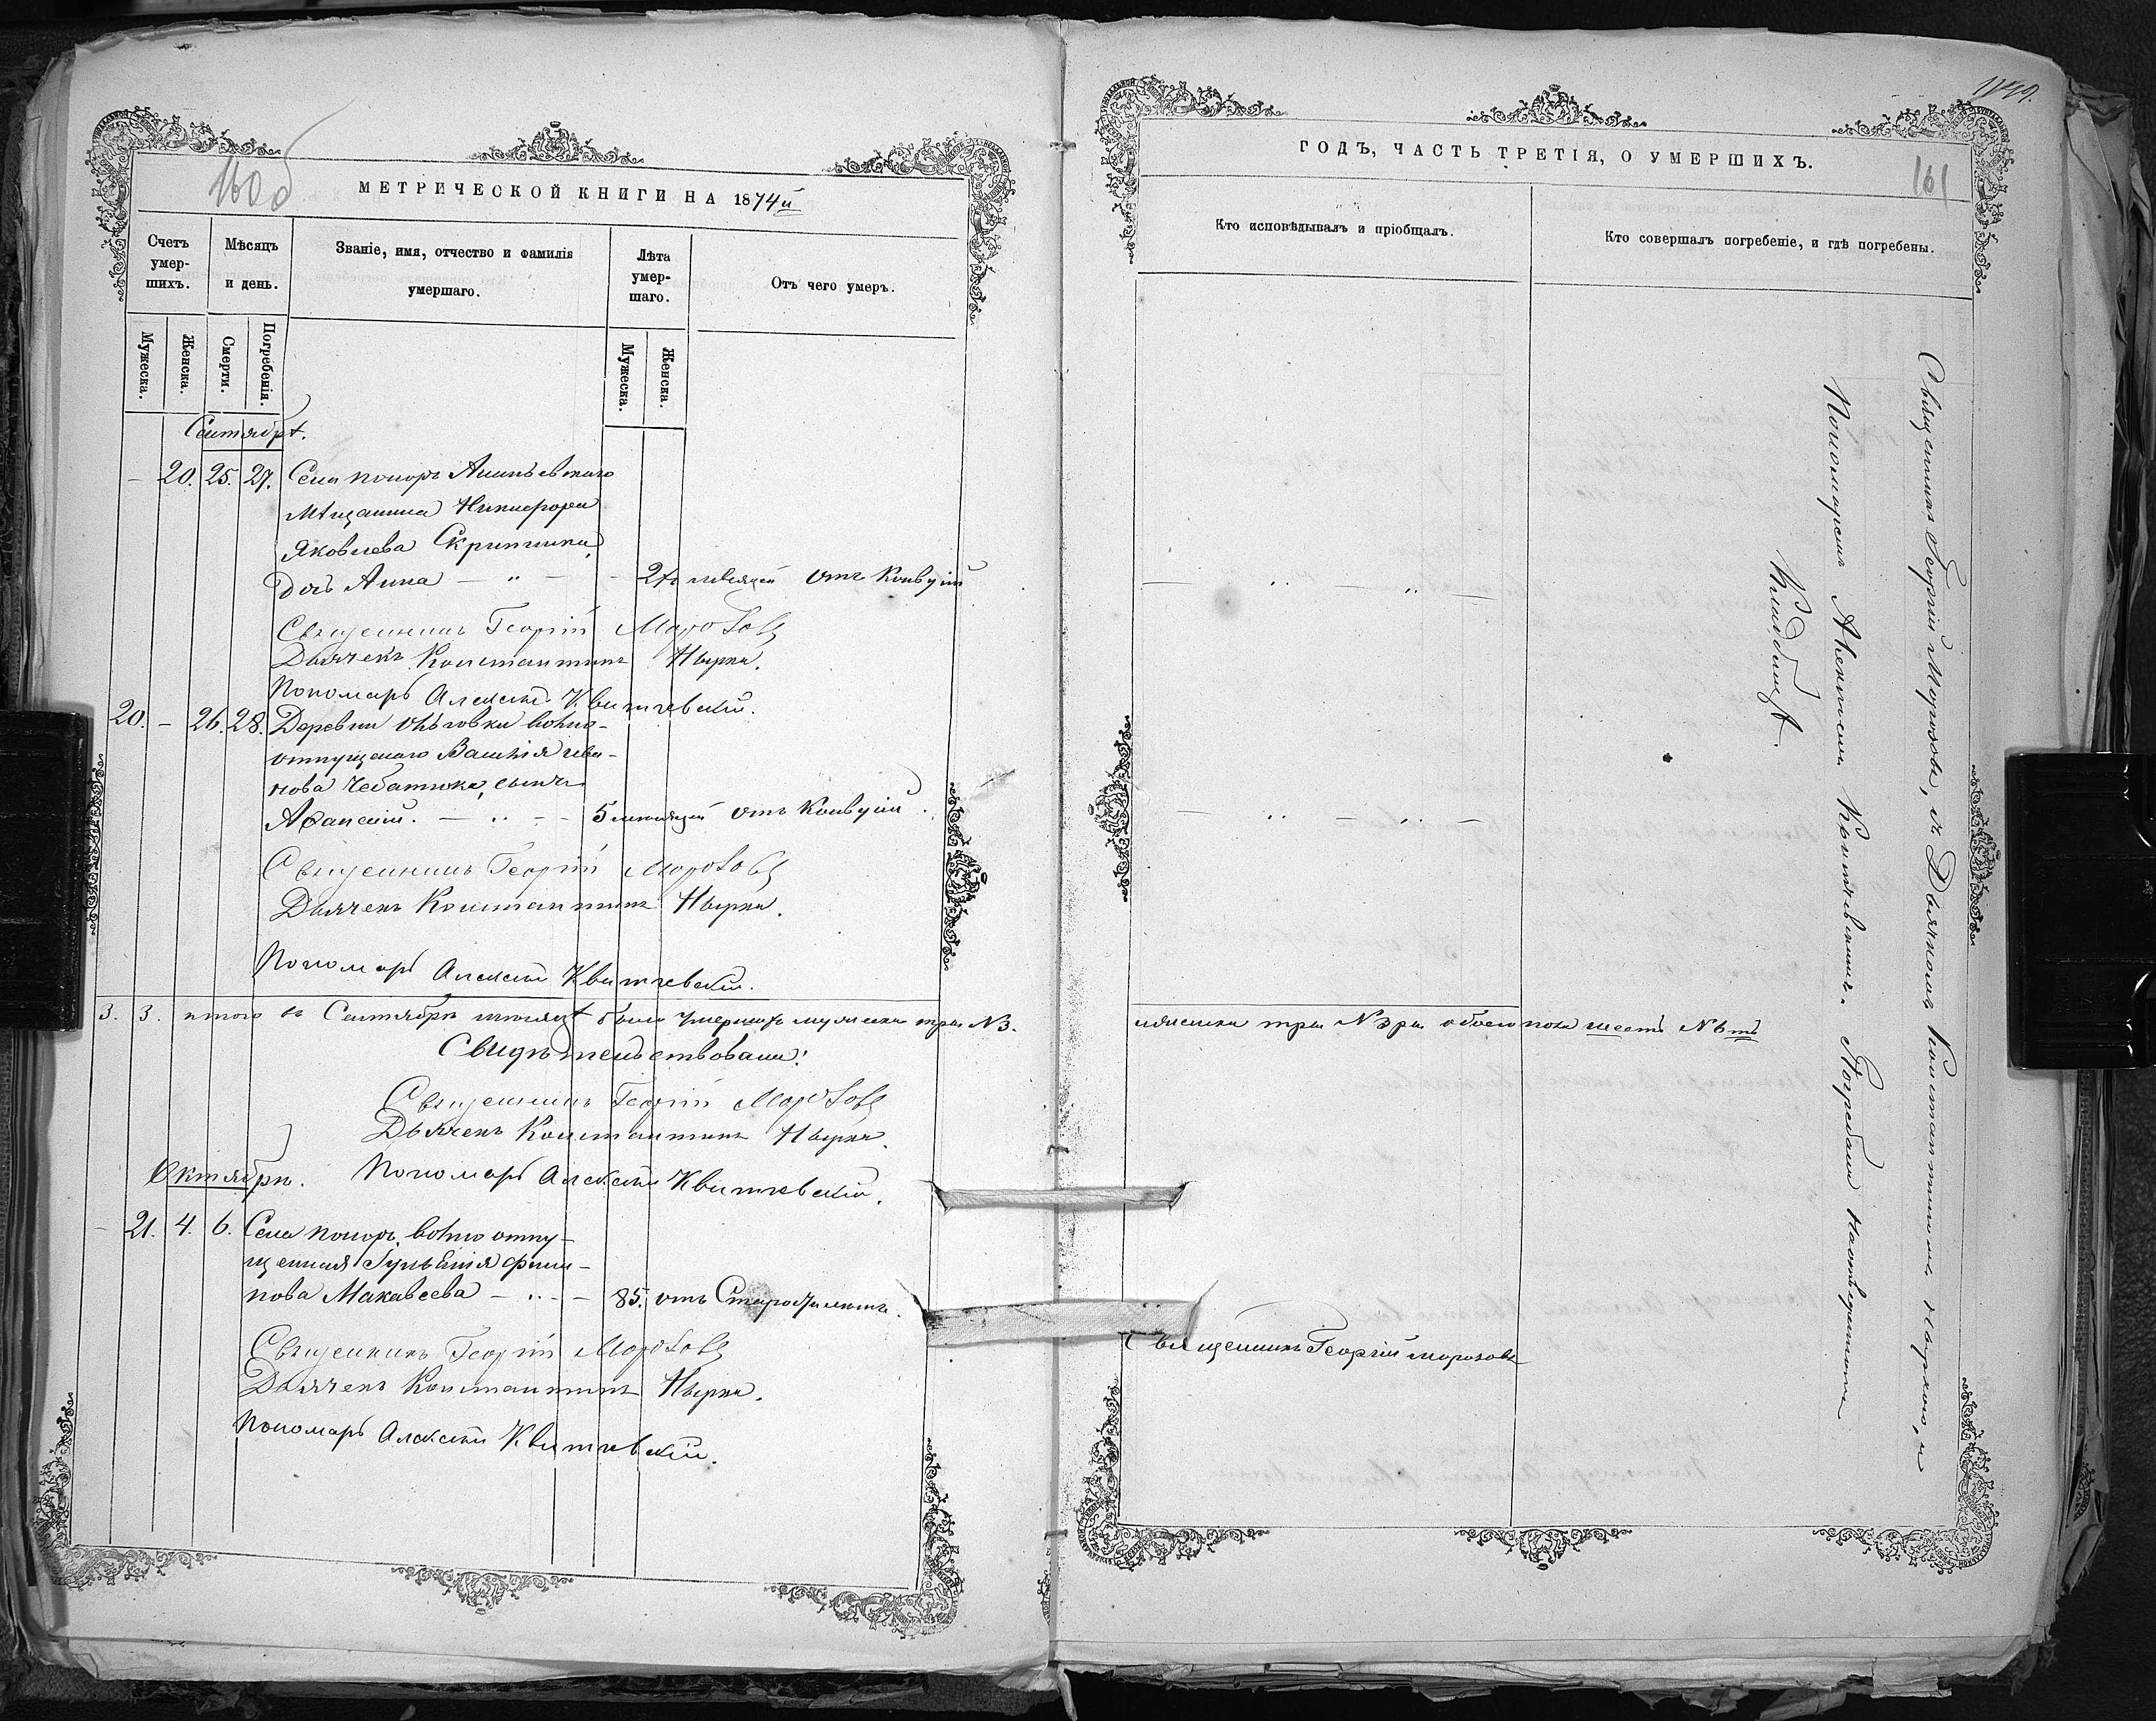 160 об
МЕТРИЧЕСКОЙ КНИГИ НА 1874й
Счетъ умер-шихъ.
Мѣсяцъ и день.
Званіе, имя, отчество и фамилія умершаго.
Лѣта умер-шаго.
Отъ чего умеръ.
Мужеска.
Женска.
Смерти.
Погребенія.
Мужеска.
Женска.
Сентябрѣ.
– 20. 25. 27. Села Попоръ
Мѣщанина Никифора
Яковлева Скрипника,
дочь Анна – „ – – 2 мѣсяцей отъ Конвуліи
Священникъ Георгій Морозовъ
Дьячекъ Константинъ Нырка.
Пономарь Алексѣй Квитчевскій.
20. – 26. 28. Деревни вольно-
отпущеннаго Василія Ива-
нова Чебатюка, сынъ
Афанасій. – „ – – 5 мѣсяцей отъ Конвуліи.
Священникъ Георгій Морозовъ
Дьячекъ Константинъ Нырка.
Пономарь Алексѣй Квитчевскій.
3. 3. итого въ Сентябрѣ мѣсяцѣ было Умершихъ мужеска три №3.
Свидѣтельствовали:
Священникъ Георгій Морозовъ
Дьячекъ Константинъ Нырка.
Октябрь. Пономарь Алексѣй Квитчевскій.
– 21. 4. 6. Села Попоръ, вольно отпу-
щенная Филип-
пова Макавеева – „ – – 85. отъ Старости
Священникъ Георгій Морозовъ
Дьячекъ Константинъ Нырка.
Пономарь Алексѣй Квитчевскій.
161
ГОДЪ, ЧАСТЬ ТРЕТІЯ, О УМЕРШИХЪ.
Кто исповѣдывалъ и пріобщалъ.
Кто совершалъ погребеніе, и гдѣ погребены.
– „ – „ –
– „ – „ –
женска три обоего пола шесть №6ть
Священникъ Георгій Морозовъ
Священникъ Георгій Морозовъ, съ Дьячкомъ Константиномъ Ныркою, и
Пономаремъ Алексѣемъ Квитчевскимъ. Погребали на
Кладбищѣ.